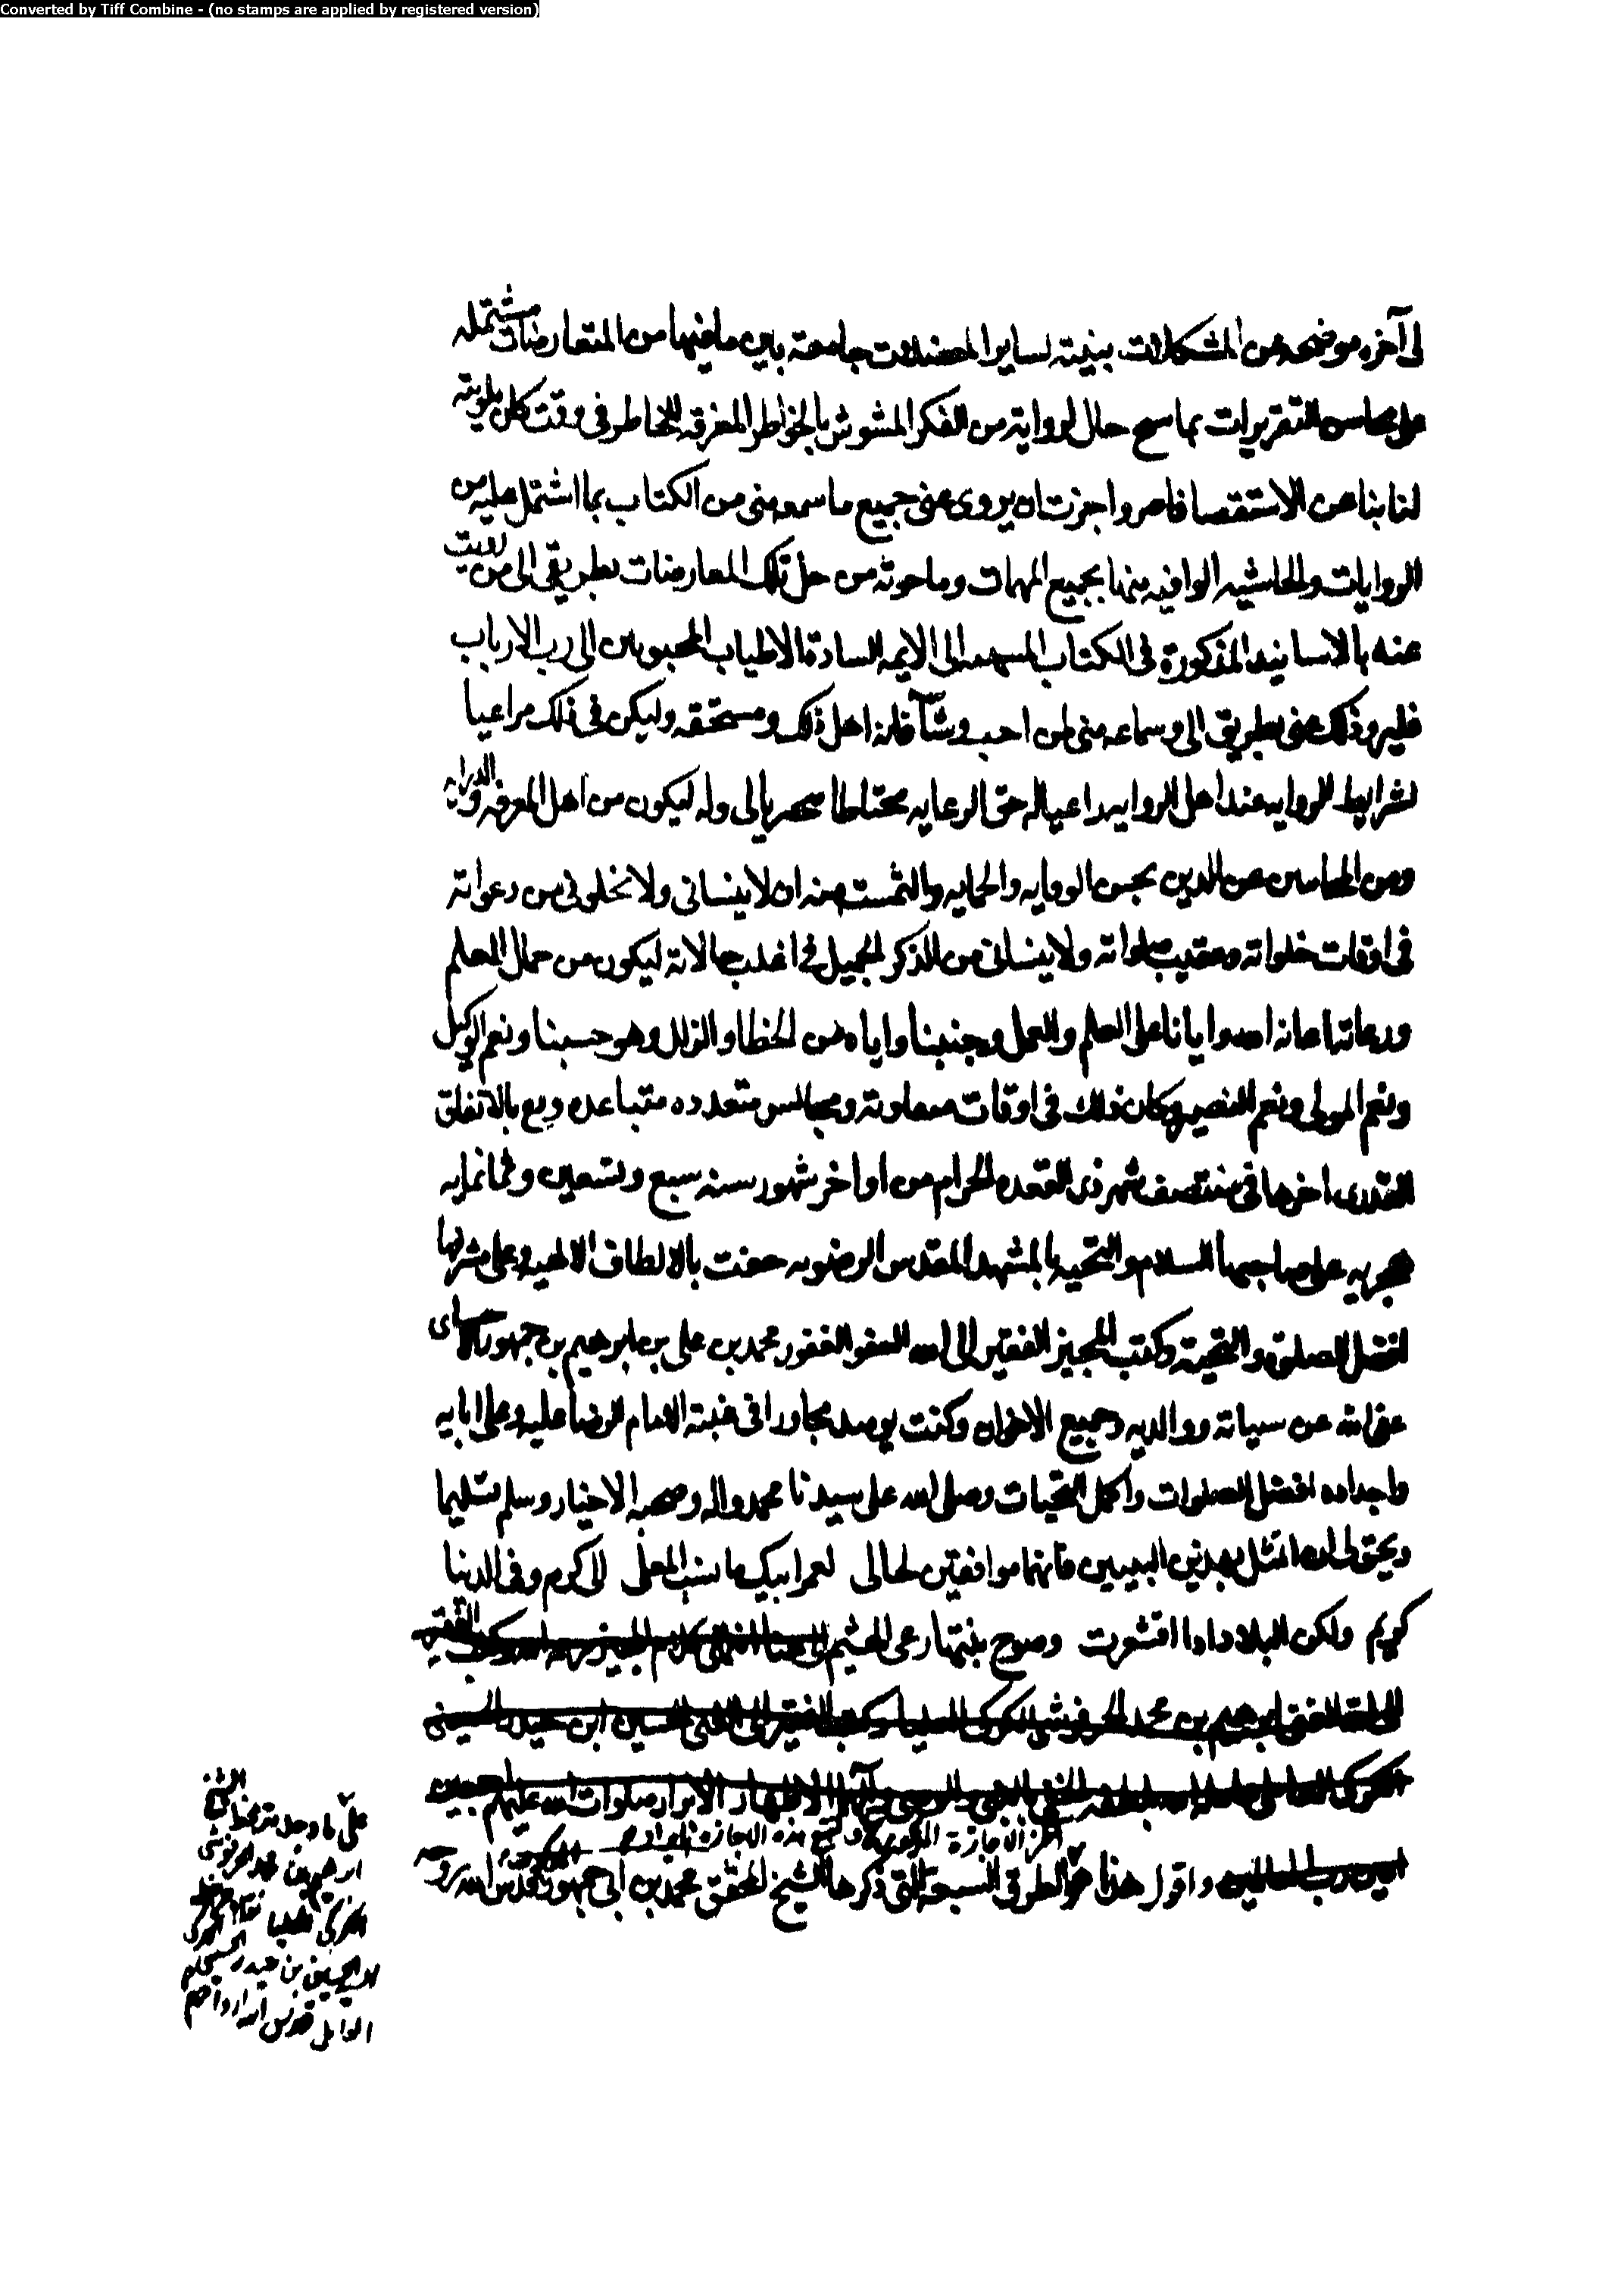 Converted by Tiff Combine - (no stamps are applied by registered version)
لى آخره موضحه من المشكلات مبينة لساير المعضلات جامعة بين ما فيها من المتعارضات مشتمله
على محاسن التقريرات بما سح حال الرواية من الفكر المشوش بالخواطر المفرقه للخاطر فى وقت كان
عن الاستقصا واجزت له ان يروى عنى جميع ما سمعه منى من الكتاب بما اشتمل عليه من
الروايات والحاشيه الوافيه منها بجميع المهمات وما حوته من حل تلك المعارضات بطريقى الى من رويت
عنه بالاسانيد المذكورة فى الكتاب الى الايمه السادة الاطياب المحبوبين الى رب الارباب
فليرو ذلك عنى بطريق الى وسماعه منى لمن احب وشآ فانه اهل ذلك ومستحقه وليكن فى ذلك مراعيا
لشرايط الروايه عند اهل الروايه راعيا له حق الرعايه محتاطا لى وله ليكون من اهل المعرفه والدرايه
ومن المحامين عن الدين بحسن الوقايه والحمايه والتمست منه ان لا ينسانى ولا يخلونى من دعواته
فى اوقات خلواته وعقيب صلواته ولا ينسانى من الذكر الجميل فى اغلب حالاته ليكون من حمال العلم
ورعاته اعانه الله وايانا على العلم والعمل وجنبنا واياه من الخطا والزلل وهو حسبنا ونعم الوكيل
ونعم المولى ونعم النصير وكان ذلك فى اوقات متعاونة ومجالس متعدده متباعده وقع بالاتفاق
اخرها فى منتصف شهر ذى القعده الحرام من اواخر شهور سنه سبع وتسعين وثمانمايه
هجريه على صاحبها السلام والتحيه بالمشهد المقدس الرضويه حفت بالالطاف الالهيه وعلى مشرفها
افضل الصلوة والتحية وكتب المجيز الفقير الى الله العفو الغفور محمد بن على بن ابرهيم بن جمهور
عفى الله عن سياته ووالديه وجميع الاخوان وكنت يوميذ مجاورا فى عتبة الامام الرضا عليه وعلى ابايه
واجداده افضل الصلوات واكمل التحيات وصلى الله على سيدنا محمد واله وصحبه الاخيار وسلم تسليما
ويحق لى ان اتمثل بهذين البيتين فانهما موافقين لحالى لعمر ابيك ما نسب المعلى الى كرم وفى الدنيا
كريم ولكن البلاد اذا اقشعرت وصوح نبتها رعى الهشيم الى هنا انتهى كلام المجيز رحمه الله وكتب الفقير
الى الله الغنى ابرهيم بن محمد الحرفوشى الكركى وكتب الفقير الى الله الغنى الحسين ابن حيدر الحسينى
الكركى العاملى الاطهار الابرار صلوات الله عليهم اجمعين
اخر الاجازة المذكورة
امين رب العالمين واقول هذا هو الطرق السبعة التى ذكرها الشيخ المحقق محمد بن ابى جمهور قدس الله روحه
على ما وجدته بخط الشيخ
ابرهيم بن محمد الحرفوشى
الكركى
الحسين بن حيدر الحسينى
العاملى قدس الله ارواحهم